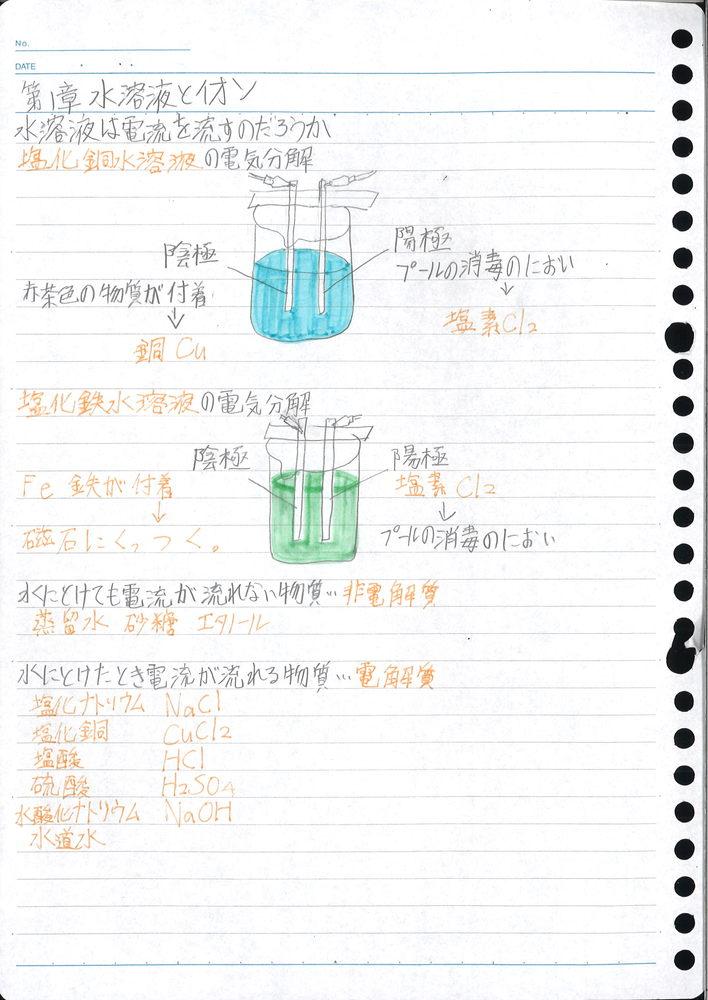 No.
DATE
第1章 水溶液とイオン
水溶液は電流を流すのだろうか
塩化銅水溶液の電気分解
陰極
陽極
プールの消毒のにおい
↓
塩素Cl2
赤茶色の物質が付着
↓
銅 Cu
塩化鉄水溶液の電気分解
陰極
陽極
Fe 鉄が付着
↓
磁石にくっつく。
塩素 Cl2
↓
プールの消毒のにおい
水にとけても電流が流れない物質…非電解質
蒸留水 砂糖 エタノール
水にとけたとき電流が流れる物質…電解質
塩化ナトリウム NaCl
塩化銅 CuCl2
塩酸 HCl
硫酸 H2SO4
水酸化ナトリウム NaOH
水道水